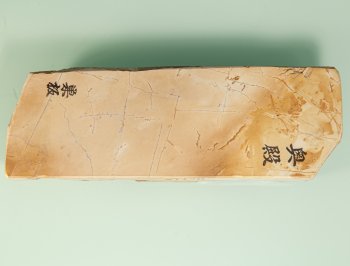 巣板
奥殿